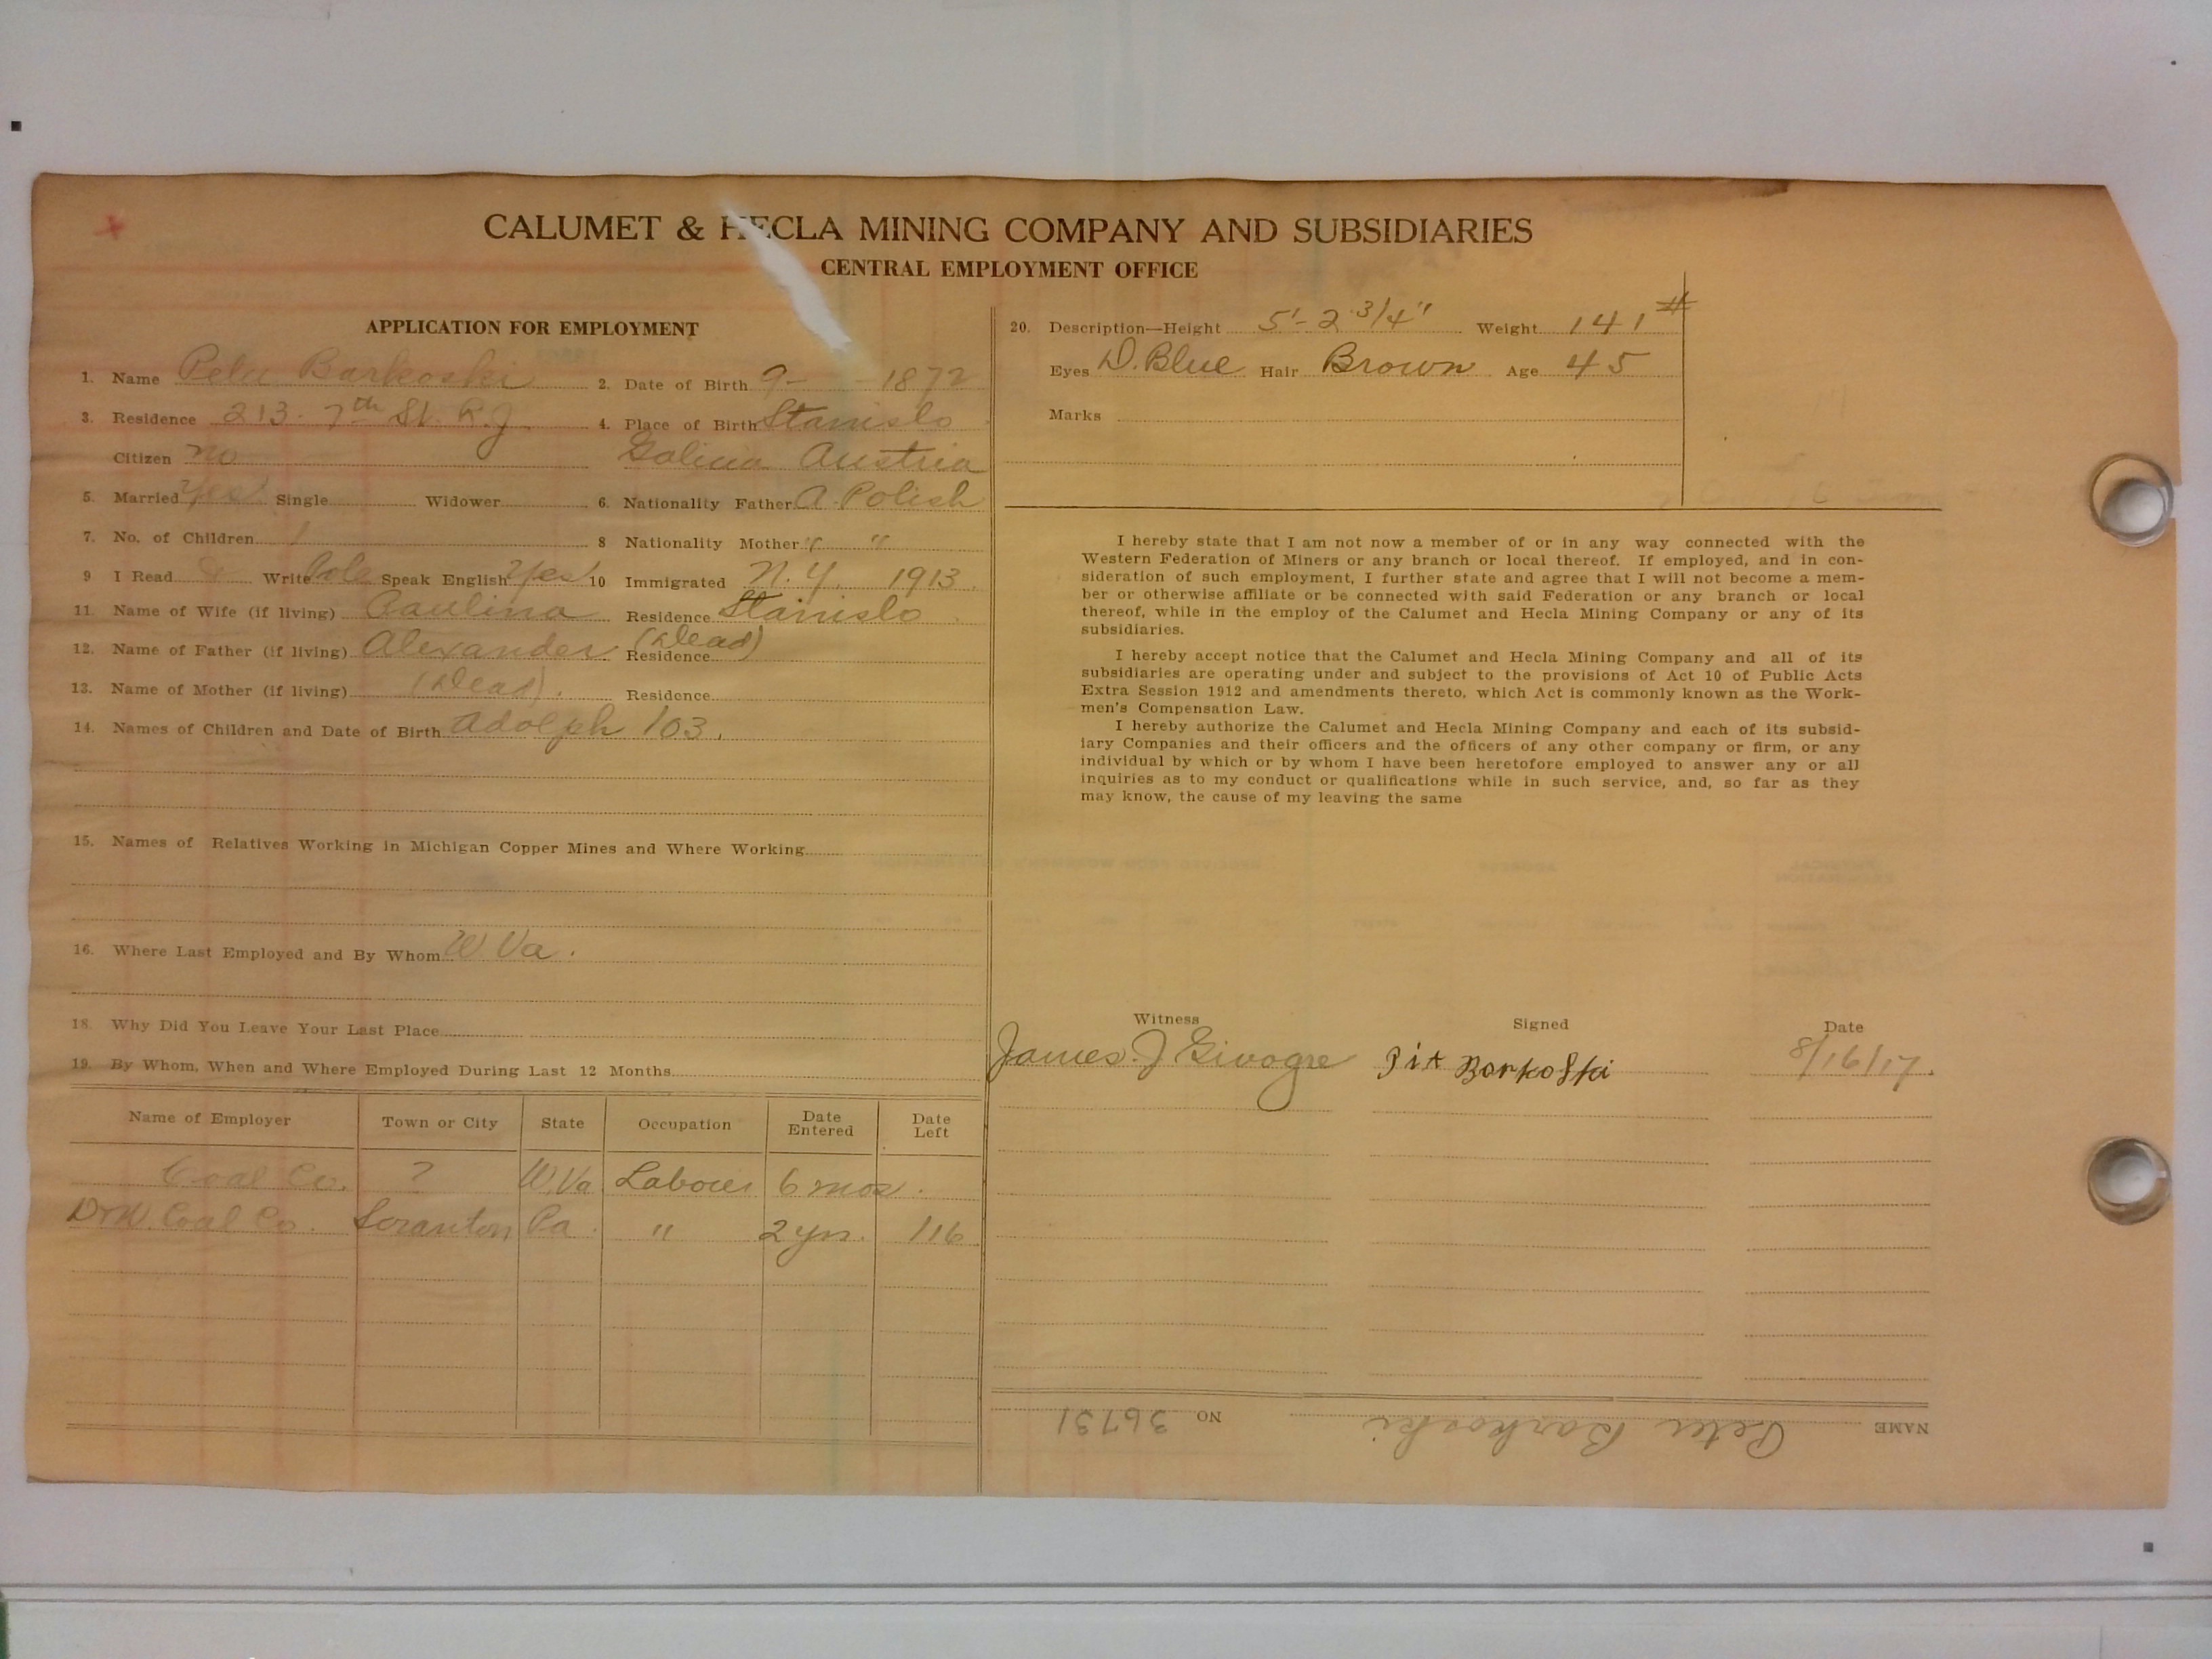 CALUMET & HECLA MINING COMPANY AND SUBSIDIARIES
CENTRAL EMPLOYMENT OFFICE
APPLICATION FOR EMPLOYMENT
1. Name Peter Barkoski 2. Date of Birth 9- - 1872
3. Residence 213- 7th St. R.J. 4. Place of Birth Stanislo
Citizen No Galicia Austria
5. Married Yes Single Widower 6. Nationality Father A. Polish
7. No. of Children 1 8 Nationality Mother " "
9 I Read & Write Pole Speak English Yes 10 Immigrated N.Y. 1913
11. Name of Wife (if living) Paulina Residence Stanislo
12. Name of Father (if living) Alexander (Dead) Residence
13. Name of Mother (if living) (Dead). Residence
14. Names of Children and Date of Birth Adolph 103.
15. Names of Relatives Working in Michigan Copper Mines and Where Working
16. Where Last Employed and By Whom W Va.
18. Why Did You Leave Your Last Place
19. By Whom, When and Where Employed During Last 12 Months
Name of Employer Town or City State Occupation Date Entered Date Left
Coal Co. ? W.Va Labourer 6 mos.
D & W. Coal Co. Scranton Pa. " 2 yrs. 116
20. Description—Height 5'-2 3/4" Weight 141#
Eyes D. Blue Hair Brown Age 45
Marks
I hereby state that I am not now a member of or in any way connected with the
Western Federation of Miners or any branch or local thereof. If employed, and in con-
sideration of such employment, I further state and agree that I will not become a mem-
ber or otherwise affiliate or be connected with said Federation or any branch or local
thereof, while in the employ of the Calumet and Hecla Mining Company or any of its
subsidiaries.
I hereby accept notice that the Calumet and Hecla Mining Company and all of its
subsidiaries are operating under and subject to the provisions of Act 10 of Public Acts
Extra Session 1912 and amendments thereto, which Act is commonly known as the Work-
men's Compensation Law.
I hereby authorize the Calumet and Hecla Mining Company and each of its subsid-
iary Companies and their officers and the officers of any other company or firm, or any
individual by which or by whom I have been heretofore employed to answer any or all
inquiries as to my conduct or qualifications while in such service, and, so far as they
may know, the cause of my leaving the same
Witness Signed Date
James J Givogre Pit Barkoski 8/16/17.
NAME Peter Barkoski NO 36731